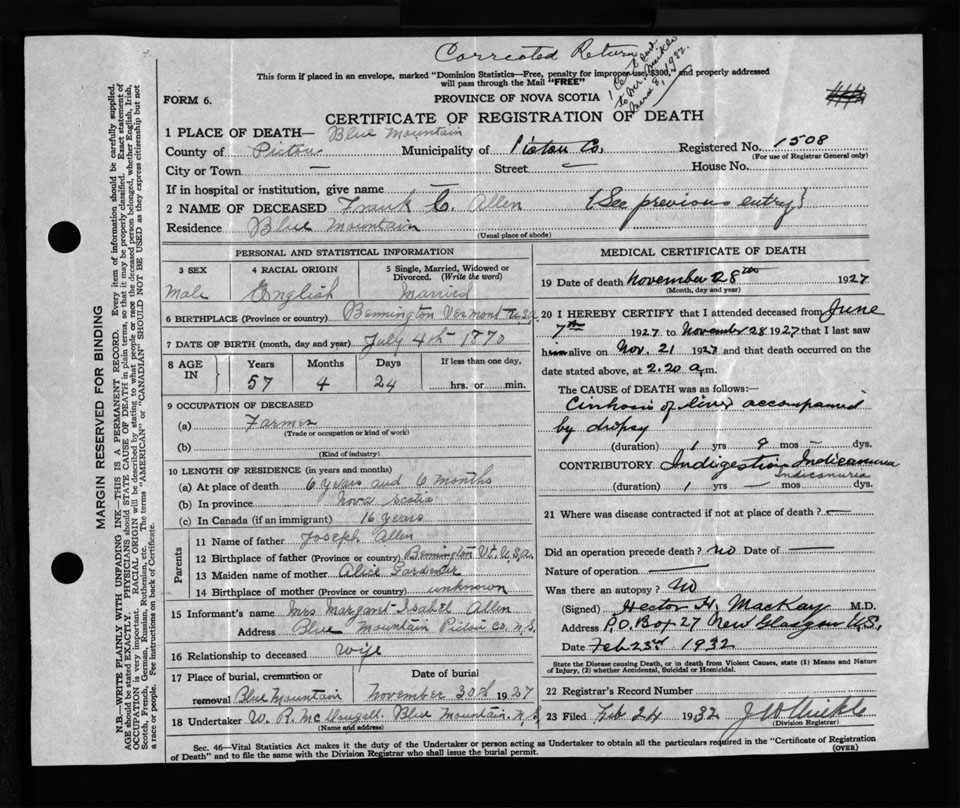 Corrected Return
This form if placed in an envelope, marked "Dominion Statistics—Free, penalty for improper use, $300," and properly addressed
will pass through the Mail "FREE"
to Mr.
1932.
FORM 6.
PROVINCE OF NOVA SCOTIA
CERTIFICATE OF REGISTRATION OF DEATH
1 PLACE OF DEATH— Blue Mountain
County of Pictou Municipality of Pictou Co. Registered No. 1508
(For use of Registrar General only)
City or Town — Street — House No.
If in hospital or institution, give name —
2 NAME OF DECEASED Frank C. Allen {See previous entry}
Residence Blue Mountain
(Usual place of abode)
PERSONAL AND STATISTICAL INFORMATION
3 SEX 4 RACIAL ORIGIN 5 Single, Married, Widowed or Divorced. (Write the word)
Male English Married
6 BIRTHPLACE (Province or country) Bennington Vermont U.S.A.
7 DATE OF BIRTH (month, day and year) July 4th 1870
8 AGE IN Years Months Days If less than one day,
57 4 24 hrs. or min.
9 OCCUPATION OF DECEASED
(a) Farmer
(Trade or occupation or kind of work)
(b)
(Kind of industry)
10 LENGTH OF RESIDENCE (in years and months)
(a) At place of death 6 years and 6 months
(b) In province Nova Scotia
(c) In Canada (if an immigrant) 16 years
Parents
11 Name of father Joseph Allen
12 Birthplace of father (Province or country) Bennington Vt. U.S.A.
13 Maiden name of mother Alice Gardenter
14 Birthplace of mother (Province or country) unknown
15 Informant's name Mrs Margaret Isabel Allen
Address Blue Mountain Pictou Co. N.S.
16 Relationship to deceased Wife
17 Place of burial, cremation or removal Date of burial
Blue Mountain November 30th 1927
18 Undertaker W. R. McDougall. Blue Mountain. N.S.
(Name and address)
MEDICAL CERTIFICATE OF DEATH
19 Date of death November 28th 1927
(Month, day and year)
20 I HEREBY CERTIFY that I attended deceased from June
7th 1927 to November 28 1927 that I last saw
him alive on Nov. 21 1927 and that death occurred on the
date stated above, at 2.20 a.m.
The CAUSE OF DEATH was as follows:—
Cirrhosis of liver accompanied
by dropsy
(duration) 1 yrs 9 mos — dys.
CONTRIBUTORY Indigestion Indicanuria
Indicanuria
(duration) 1 yrs — mos dys.
21 Where was disease contracted if not at place of death? —
Did an operation precede death? no Date of —
Nature of operation —
Was there an autopsy? No
(Signed) Hector H. MacKay M.D.
Address P.O. Box 27 New Glasgow N.S.
Date Feb 23rd 1932
State the Disease causing Death, or in death from Violent Causes, state (1) Means and Nature
of Injury, (2) whether Accidental, Suicidal or Homicidal.
22 Registrar's Record Number
23 Filed Feb 24 1932
(Division Registrar)
Sec. 46—Vital Statistics Act makes it the duty of the Undertaker or person acting as Undertaker to obtain all the particulars required in the "Certificate of Registration
of Death" and to file the same with the Division Registrar who shall issue the burial permit.
(OVER)
MARGIN RESERVED FOR BINDING
N.B.—WRITE PLAINLY WITH UNFADING INK—THIS IS A PERMANENT RECORD. Every item of information should be carefully supplied.
AGE should be stated EXACTLY. PHYSICIANS should STATE CAUSE OF DEATH in plain terms, so that it may be properly classified. Exact statement of
OCCUPATION is very important. RACIAL ORIGIN will be described by stating to what people or race the deceased person belonged, whether English, Irish,
Scotch, French, German, Russian, Ruthenian, etc. The terms "AMERICAN" or "CANADIAN" SHOULD NOT BE USED as they express citizenship but not
a race or people. See instructions on back of Certificate.